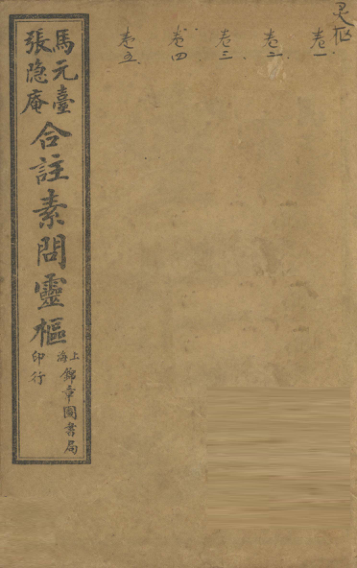 灵枢
卷一
卷二
卷三
卷四
卷五
馬元臺
張隐庵
合註素問靈樞
上海
錦章圖書局
印行